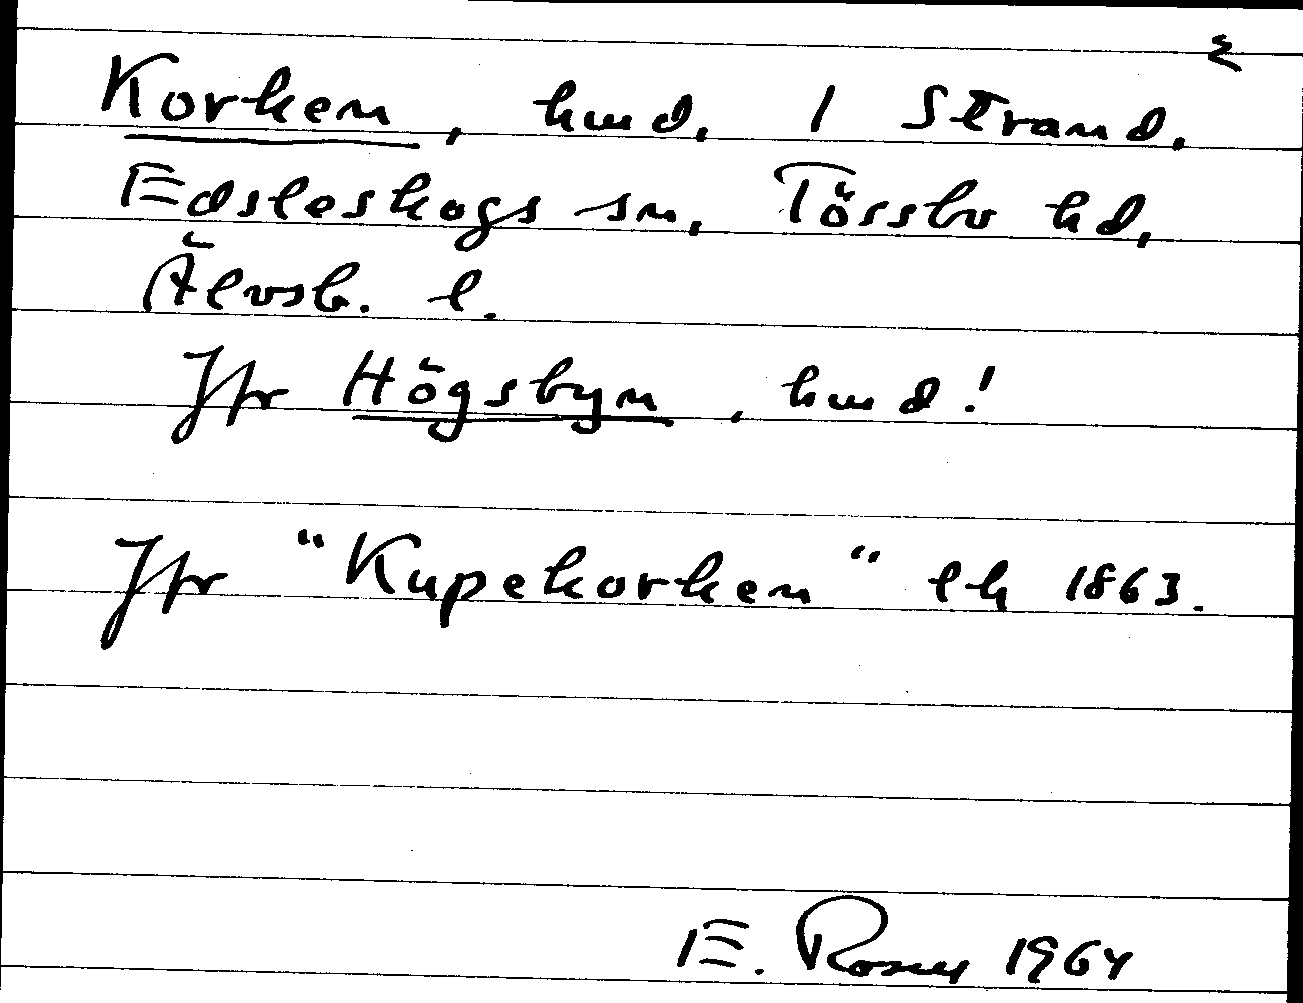 Korken, hmd. 1 Strand.
Edsleskogs sn, Tössbo hd,
Älvsb. l.
Jfr Högsbyn, hmd!
Jfr "Kupekorken" lk 1863.
E. 1964